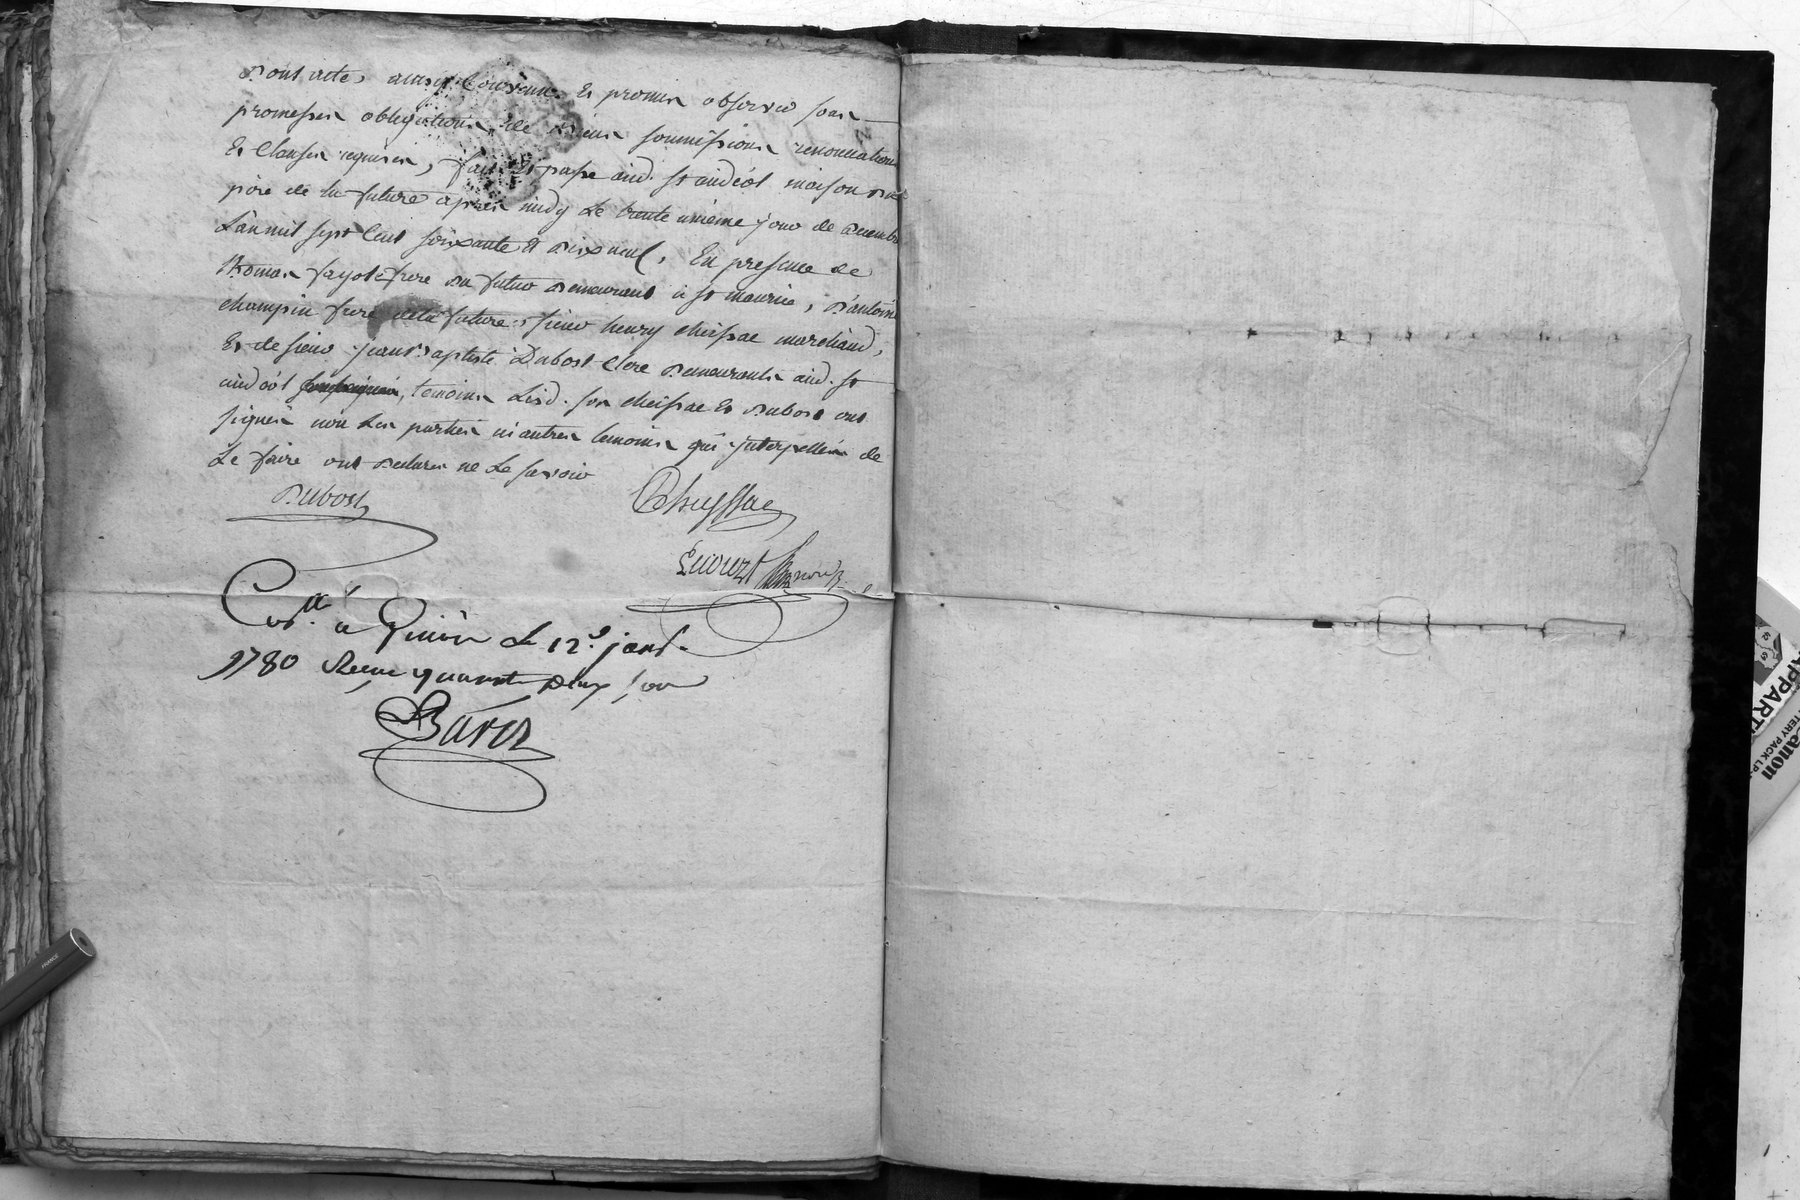 Dont acte, ainsy Convenu Et promis observer sous
promesses obligations de biens soumissions renonciations
Et Clauses requises, fait Et passe aud. st andéol maison du
père de la future après midy Le trente unième jour de decembre
L'an mil sept Cent soixante Et dix neuf, En presence de
thomas fayolle frere du futur demeurant à st maurice, d'antoine
champin frere de la future, sieur henry cheissac marchand,
Et de sieur jean baptiste Dubost Clerc demeurants aud. st
andéol temoins Lesd. srs cheissac Et dubost ont
signés non Les parties ni autres temoins qui interpellés de
Le faire ont declarés ne Le savoir
Dubost
Cheyssac
Lecourt
Cont. à Le 12e janv.
1780 Reçu quarante deux sous
FRANCE
APPART
anon
TERY PACK LP-